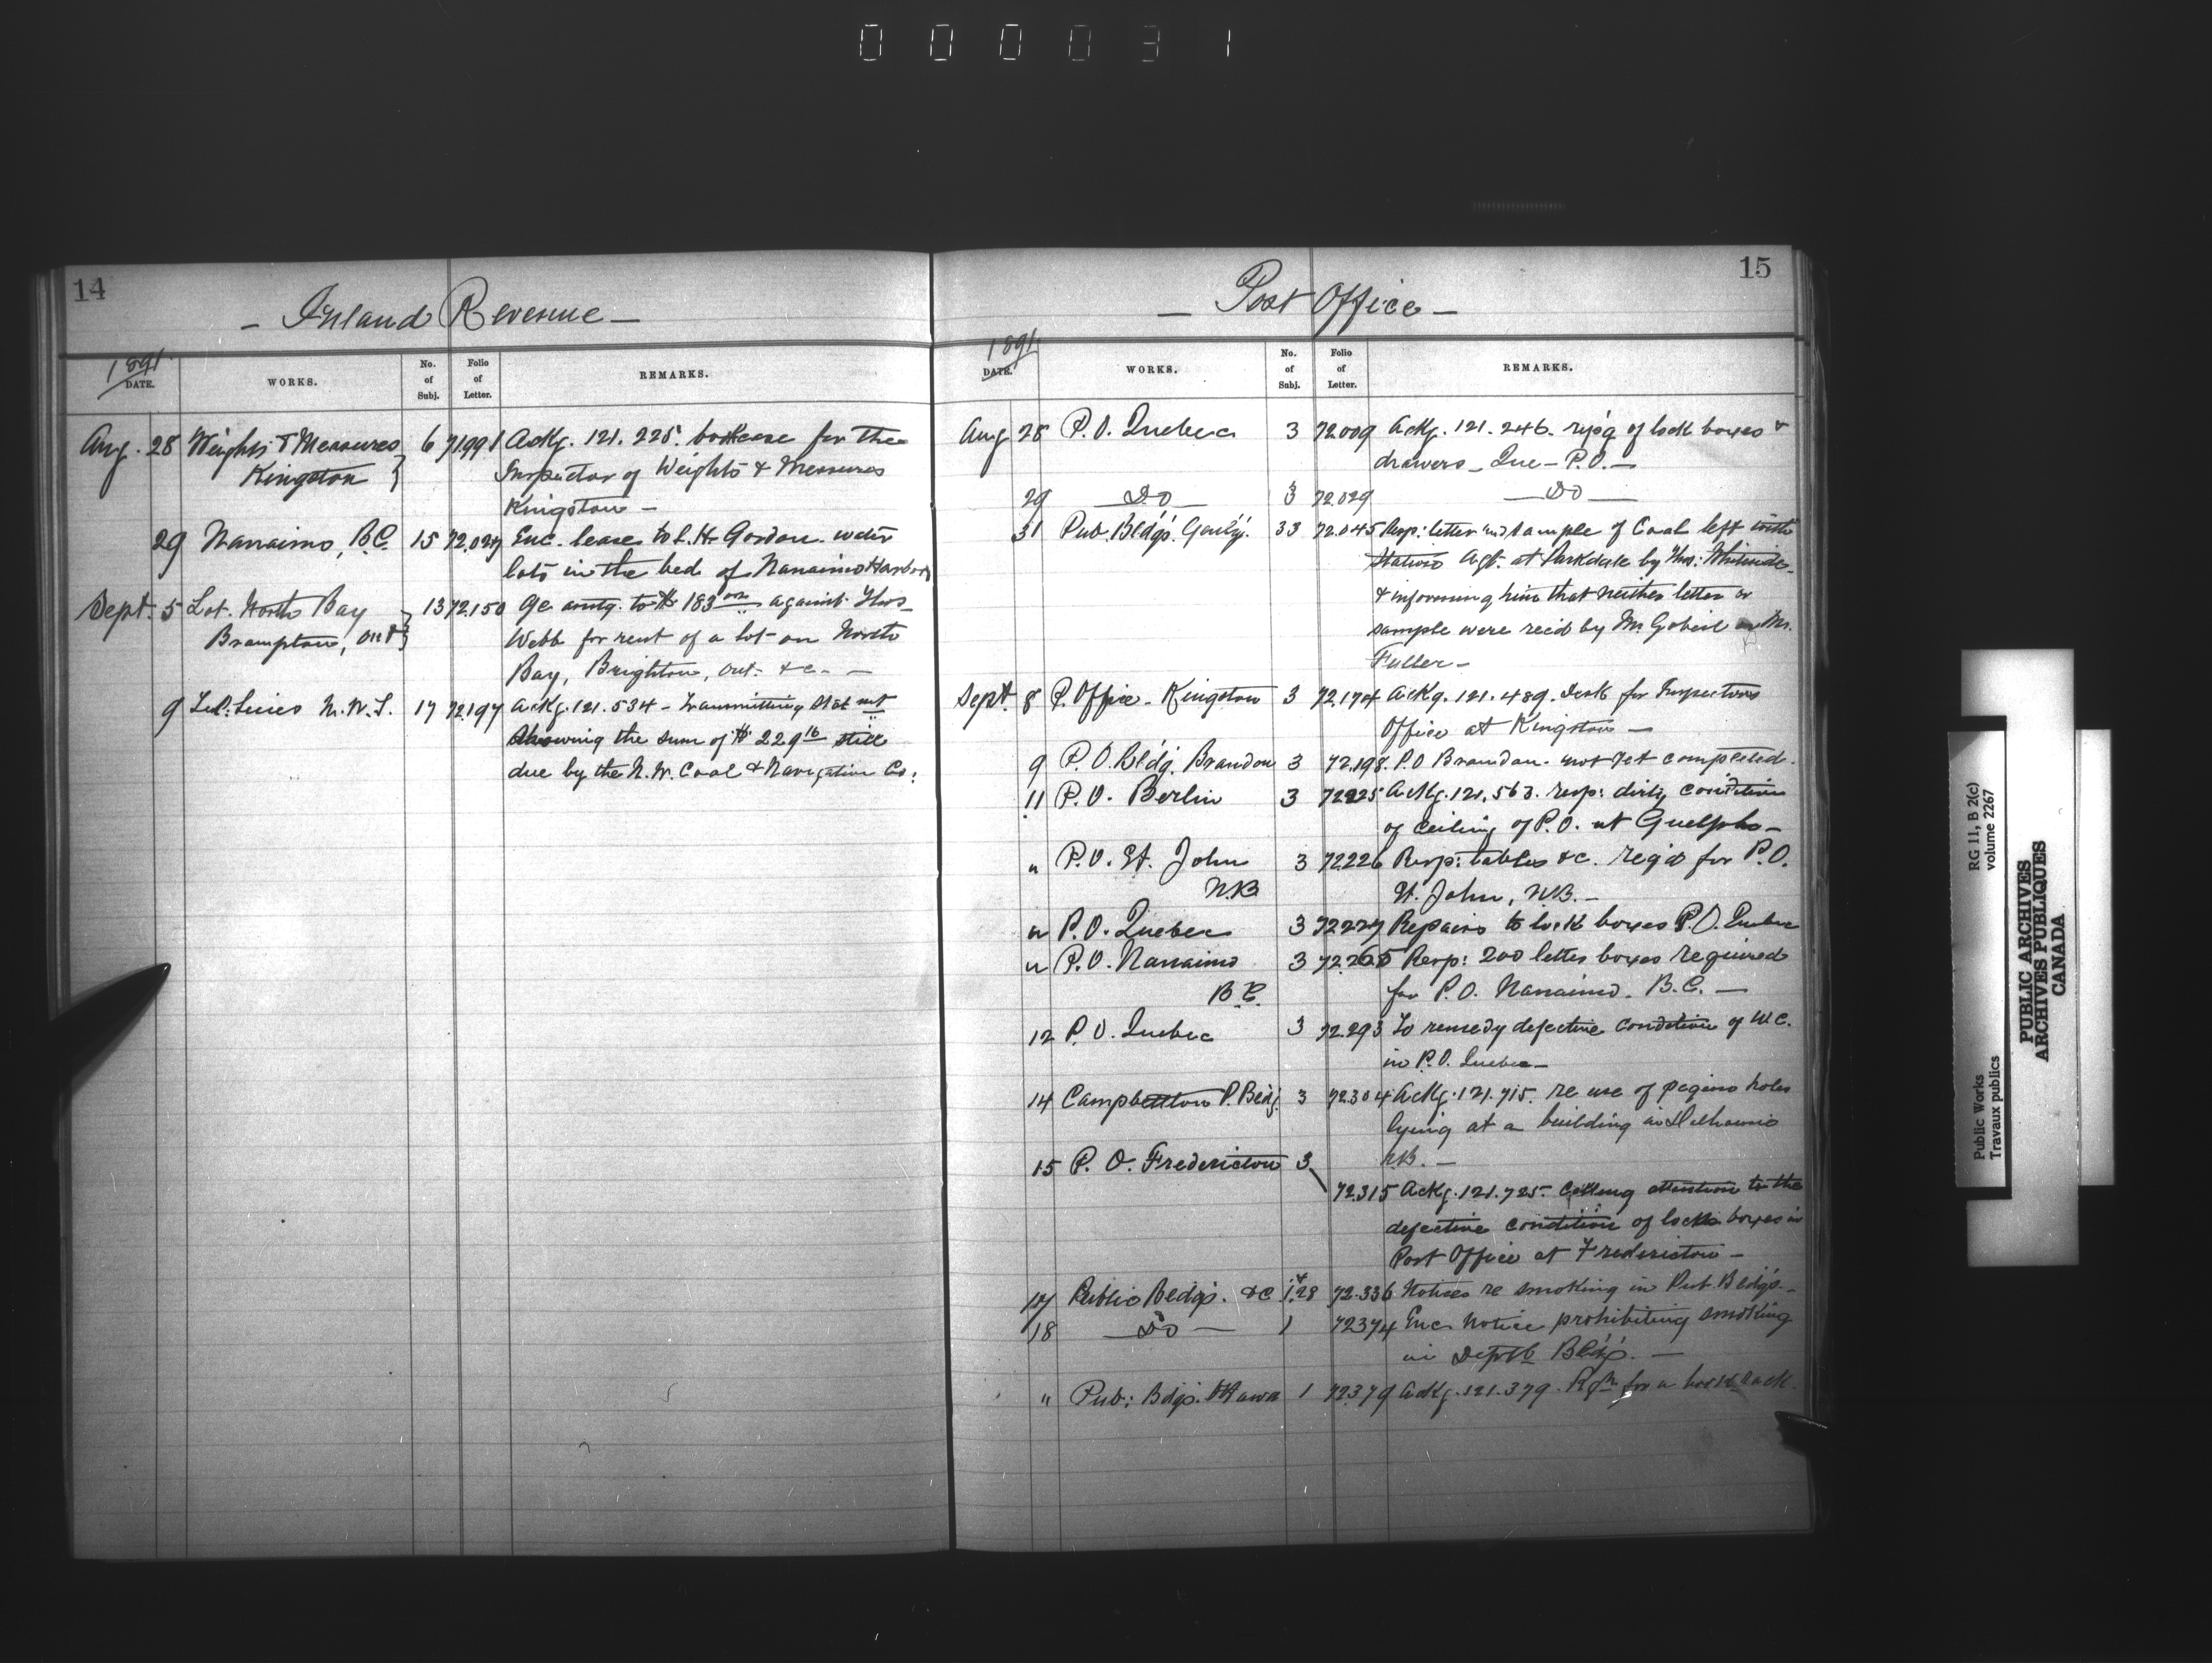 000031
14
- Inland Revenue -
1891
DATE. WORKS. No. of Subj. Folio of Letter. REMARKS.
Aug. 28 Weights & Measures 6 71991 Ackg. 121.225. bookcase for the
Kingston Inspector of Weights & Measures
Kingston -
29 Nanaimo, B.C. 15 72.027 Enc. lease to L. H. Gordon water
lots in the bed of Nanaimo Harbor
Sept. 5 Lot. North Bay 13 72.150 amtg. to $183 against Thos
Brampton, Ont Webb for rent of a lot on North
Bay, Brighton, Ont. &c. -
9 Tel: Lines N.W.T. 17 72.197 Ackg. 121.534 - Transmitting Stat mt
showing the sum of $229 16 still
due by the N.W. Coal & Navigation Co:
15
- Post Office -
1891
DATE. WORKS. No. of Subj. Folio of Letter. REMARKS.
Aug 28 P.O. Quebec 3 72.009 Ackg. 121.246. of lock boxes &
drawers - Que - P.O. -
29 - Do - 3 72.029 - Do -
31 Pub. Bldgs. Genly. 33 72.045 Resp: letter and sample of Coal left with
Station Agt. at Parkdale by Thos:
& informing him that neither letter or
sample were rec'd by Mr Gobeil or Mr.
Fuller -
Sept. 8 P. Office - Kingston 3 72.174 Ackg. 121.489. Desk for Inspectors
Office at Kingston -
9 P.O. Bldg. Brandon 3 72.198. P.O Brandon. not yet completed.
11 P.O. Berlin 3 72225 Ackg. 121.563. resp: dirty condition
of ceiling of P.O. at Guelph -
" P.O. St. John 3 72226 Resp: tables &c. req'd for P.O.
N.B St. John, N.B. -
" P.O. Quebec 3 72227 Repairs to lock boxes P.O. Quebec
" P.O. Nanaimo 3 72.265 Resp: 200 letter boxes required
B.C. for P.O. Nanaimo. B.C. -
12 P.O. Quebec 3 72.293 To remedy defective condition of W.C.
in P.O. Quebec -
14 Campbellton P. Bldg. 3 72.304 Ackg. 121.715. re use of pigeon holes
lying at a building in Dalhousie
15 P.O. Fredericton 3 N.B. -
72.315 Ackg. 121.725. Calling attention to the
defective condition of locks boxes in
Post Office at Fredericton -
17 Public Bldgs. &c 1 & 28 72.336 Notices re smoking in Pub. Bldgs. -
18 - Do - 1 72374 Enc. Notice prohibiting smoking
in Deptl Bldgs. -
" Pub: Bdgs. Ottawa 1 72379 Ackg. 121.379. for a rack
RG 11, B 2(c)
volume 2267
Public Works
Travaux publics
PUBLIC ARCHIVES
ARCHIVES PUBLIQUES
CANADA